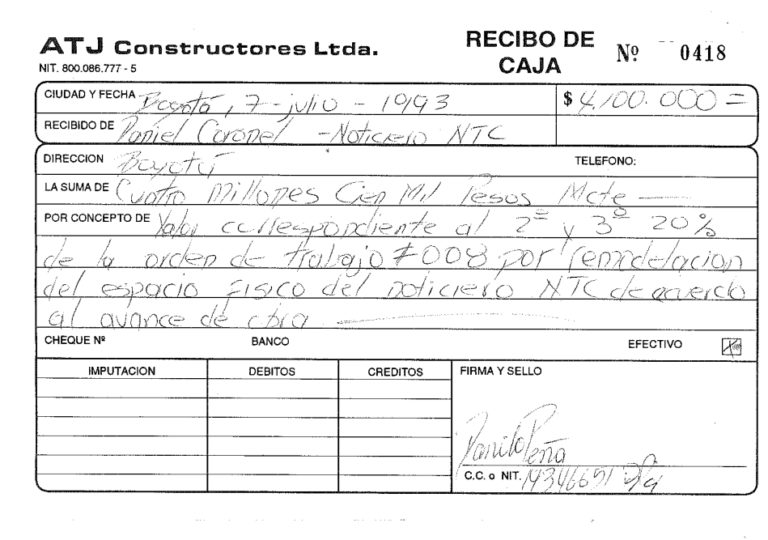 ATJ Constructores Ltda.
NIT. 800.086.777 - 5
RECIBO DE CAJA
Nº 0418
CIUDAD Y FECHA Bogotá, 7 - julio - 1993
$ 4.100.000 =
RECIBIDO DE Daniel Coronel - Noticiero NTC
DIRECCION Bogotá
TELEFONO:
LA SUMA DE Cuatro Millones Cien Mil Pesos Mcte
POR CONCEPTO DE Valor correspondiente al 2º y 3º 20%
de la orden de trabajo # 008 por remodelacion
del espacio Fisico del noticiero NTC de acuerdo
al avance de obra
CHEQUE Nº BANCO EFECTIVO
IMPUTACION DEBITOS CREDITOS FIRMA Y SELLO
Danilo Peña
C.C. o NIT.